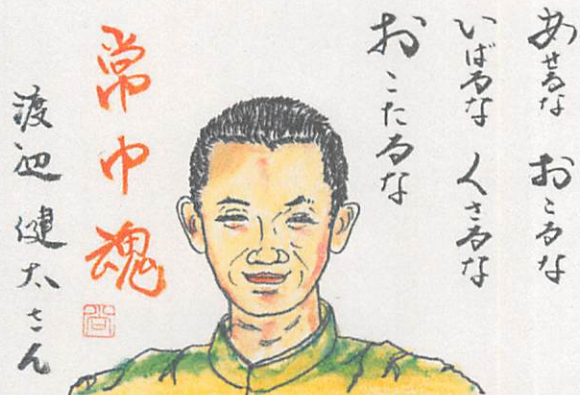 あせるな おこるな
いばるな くさるな
おこたるな
常巾魂
渡辺健太さん
尚